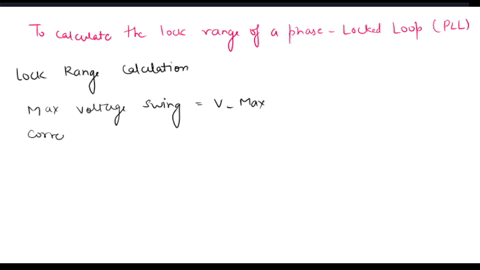 To calculate the lock range of a phase-Locked Loop (PLL)
Lock Range Calculation
Max voltage swing = V_Max
Corre